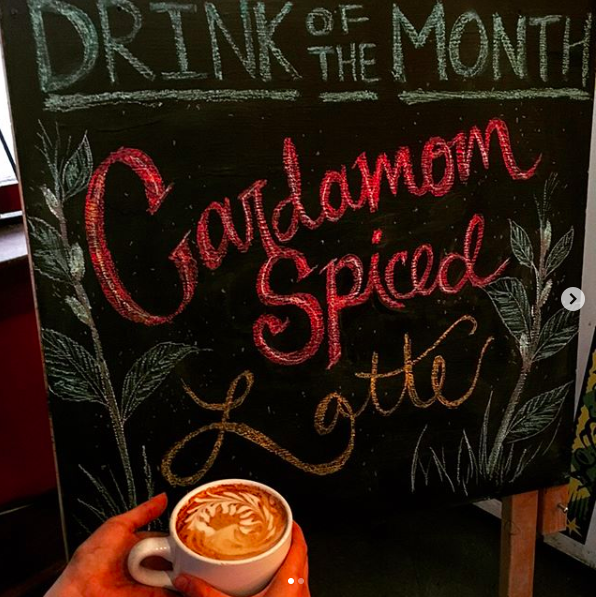 DRINK OF THE MONTH
Cardamom
Spiced
Latte